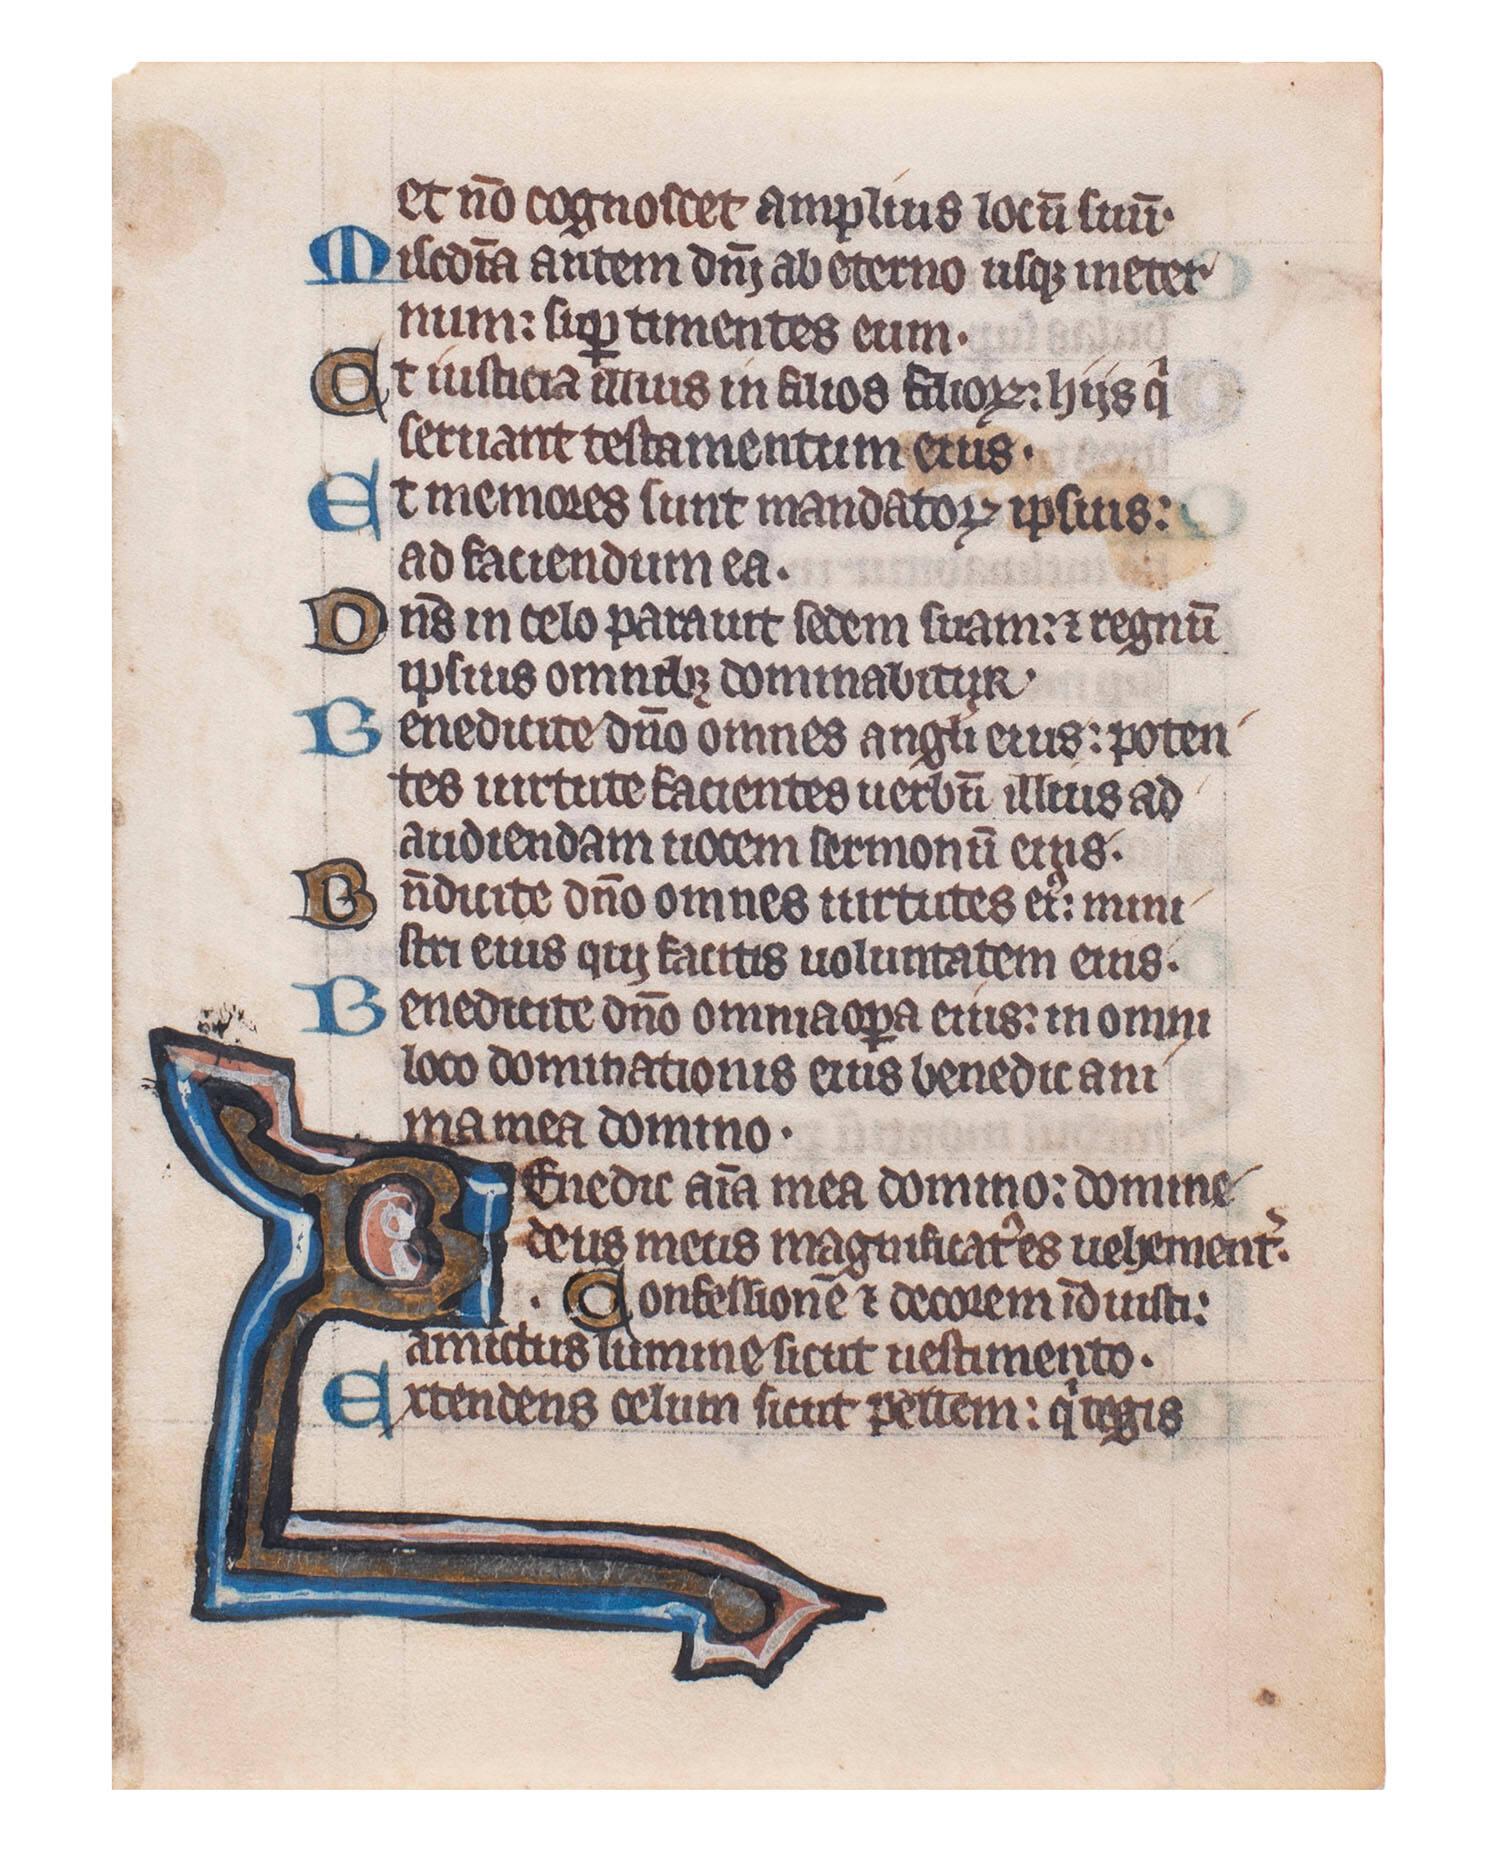 et nō cognoscet amplius locū suū·
Miscdīa autem dn̄j ab eterno usqꝫ in eter
num: suꝑ timentes eum·
Et iusticia illius in filios filioꝝ: hijs qͥ
seruant testamentum eius·
Et memores sunt mandatoꝝ ipsius:
ad faciendum ea·
Dn̄s in celo parauit sedem suam: ⁊ regnū
ipsius omnibꝫ dominabitur·
Benedicite dn̄o omnes angli eius: poten
tes uirtute facientes uerbū illius ad
audiendam uocem sermonū eius·
Bn̄dicite dn̄o omnes uirtutes ei᾿: mini
stri eius qui facitis uoluntatem eius·
Benedicite dn̄o omnia oꝑa eius: in omni
loco dominationis eius benedic ani
ma mea domino·
BEnedic aīa mea domino: domine
deus meus magnificat᾿ es uehement᾿·
· Confessionē ⁊ decorem īduisti:
amictus lumine sicut uestimento·
Extendens celum sicut pellem: qͥ tegis